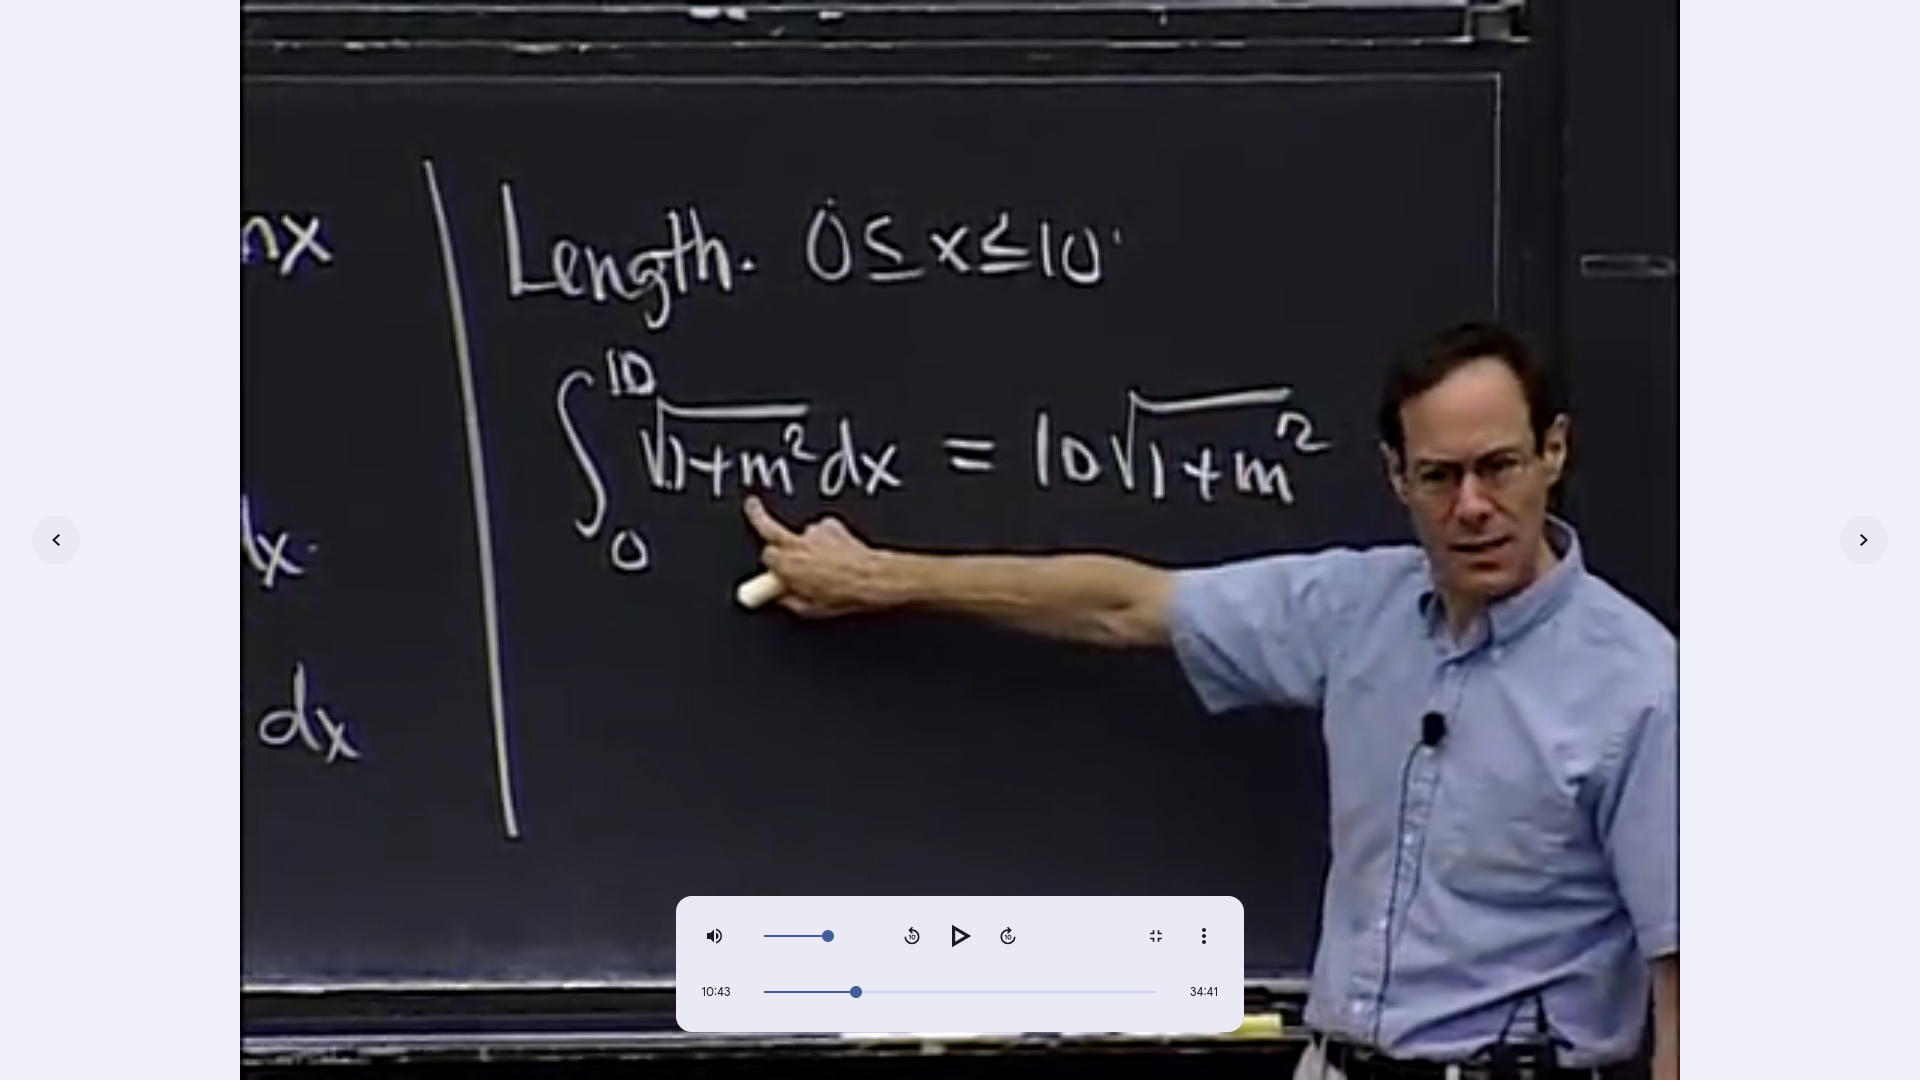 nx
dx
dx
Length. 0 ≤ x ≤ 10
∫₀¹⁰ √(1+m²) dx = 10√(1+m²)
10
10
10:43
34:41